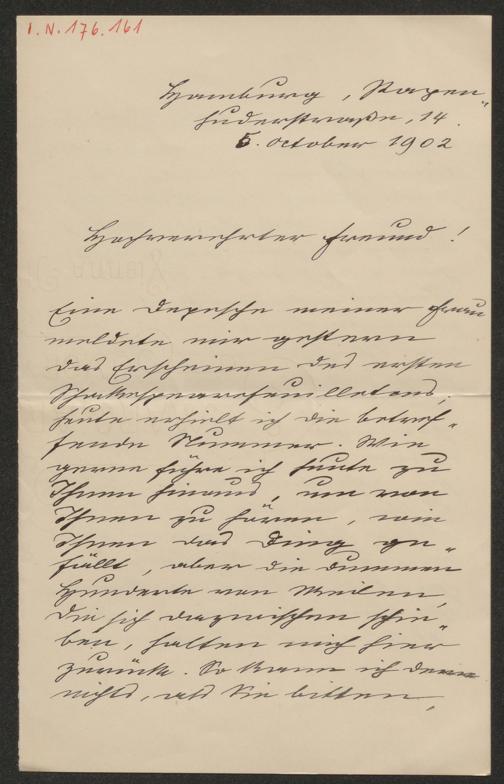 I.N. 176.161
Hamburg, Papen-
huderstraße, 14.
5. October 1902
Hochverehrter Freund!
Eine Depesche meiner Frau
meldete mir gestern
das Erscheinen des ersten
Shakespearefeuilletons,
heute erhielt ich die betref-
fende Nummer. Wie
gerne führe ich heute zu
Ihnen hinaus, um von
Ihnen zu hören, wie
Ihnen das Ding ge-
fällt, aber die dummen
Hunderte von Meilen,
die sich dazwischen schie-
ben, halten mich hier
zurück. So kann ich denn
nichts, als Sie bitten,